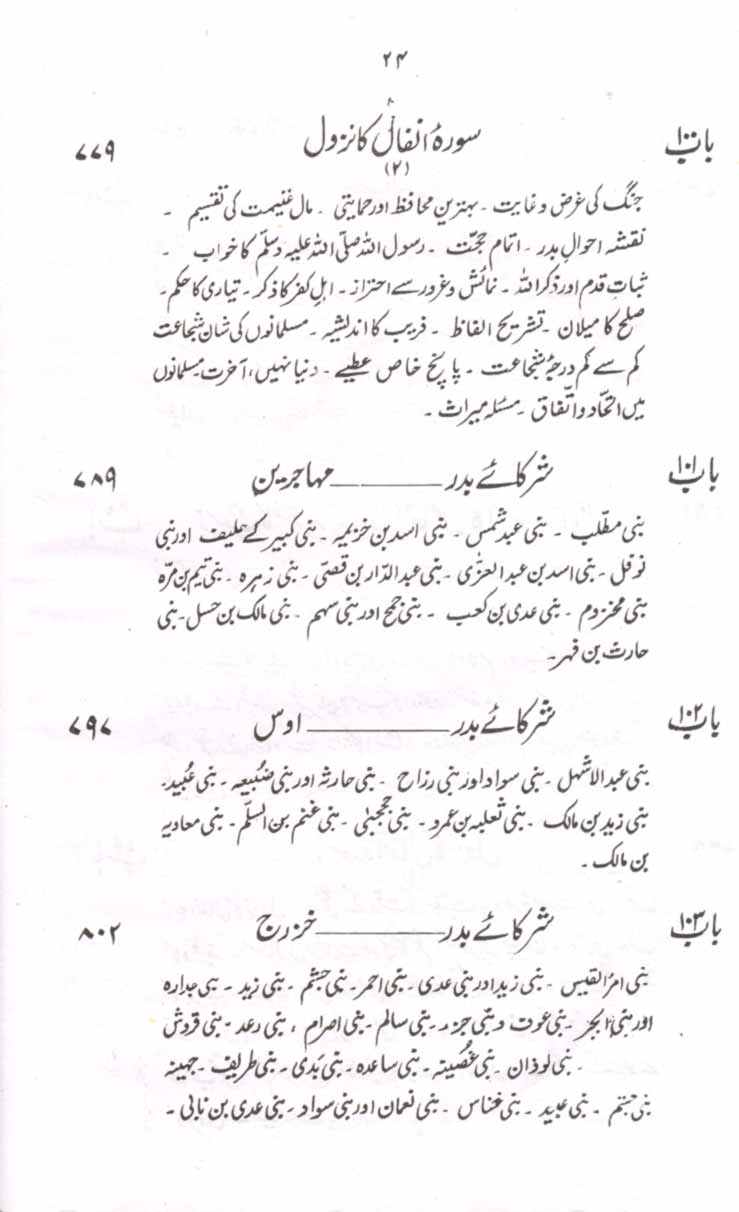 ۲۴
باب ۱۰۰ سورۂ انفال کا نزول ۷۷۹
(۲)
جنگ کی غرض و غایت ۔ بہترین محافظ اور حمایتی ۔ مال غنیمت کی تقسیم ۔
نقشہ احوالِ بدر ۔ اتمام حجّت ۔ رسول اللہ صلی اللہ علیہ وسلم کا خواب ۔
ثباتِ قدم اور ذکر اللہ ۔ نمائش و غرور سے احتراز ۔ اہلِ کفر کا ذکر ۔ تیاری کا حکم ۔
صلح کا میلان ۔ تشریح الفاظ ۔ فریب کا اندیشہ ۔ مسلمانوں کی شان شجاعت
کم سے کم درجۂ شجاعت ۔ پانچ خاص عطیے ۔ دنیا نہیں، آخرت مسلمانوں
میں اتحاد و اتفاق ۔ مسئلہ میراث ۔
باب ۱۰۱ شرکائے بدر ــــــــ مہاجرین ۷۸۹
بنی مطلب ۔ بنی عبد شمس ۔ بنی اسد بن خزیمہ ۔ بنی کبیر کے حلیف اور بنی
نوفل ۔ بنی اسد بن عبد العزّی ۔ بنی عبد الدّار بن قصیّ ۔ بنی زہرہ ۔ بنی تیم بن مرّہ
بنی مخزوم ۔ بنی عدی بن کعب ۔ بنی جمح اور بنی سہم ۔ بنی مالک بن حسل ۔ بنی
حارث بن فہر ۔
باب ۱۰۲ شرکائے بدر ــــــــ اوس ۷۹۷
بنی عبد الاشہل ۔ بنی سواد اور بنی رزاح ۔ بنی حارثہ اور بنی ضبیعہ ۔ بنی عُبید ۔
بنی زید بن مالک ۔ بنی ثعلبہ بن عمرو ۔ بنی جحجبٰی ۔ بنی غنم بن السلّم ۔ بنی معاویہ
بن مالک ۔
باب ۱۰۳ شرکائے بدر ــــــــ خزرج ۸۰۲
بنی امرٔ القیس ۔ بنی زید اور بنی عدی ۔ بنی احمر ۔ بنی جشم ۔ بنی زید ۔ بنی جدارہ
اور بنی الابجر ۔ بنی عوف و بنی جزء ۔ بنی سالم ۔ بنی اصرام ، بنی رعد ۔ بنی قروش
۔ بنی لوذان ۔ بنی غصینہ ۔ بنی ساعدہ ۔ بنی بَدی ۔ بنی طریف ۔ جہینہ
بنی جشم ۔ بنی عبید ۔ بنی خناس ۔ بنی نعمان اور بنی سواد ۔ بنی عدی بن نابی ۔